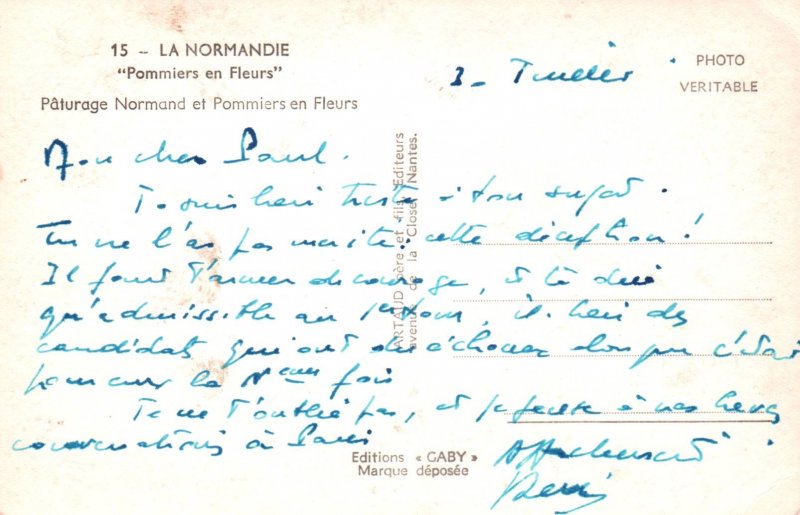 15 - LA NORMANDIE
"Pommiers en Fleurs"
Pâturage Normand et Pommiers en Fleurs
PHOTO
VERITABLE
Mon cher Paul.
Je suis bien triste à ton sujet.
Tu ne l'as pas mérité cette déception!
Il faut t'armer de courage, et te dire
qu'admissible au 1er tour, il bien des
candidats qui ont dû échouer alors que c'était
pour eux la Neme fois
Je ne t'oublie pas, et je pense à nos
conversations à Paris
Affectueusement
ARTAUD père et fils, Editeurs
avenue de la Close, Nantes.
Editions « GABY »
Marque déposée